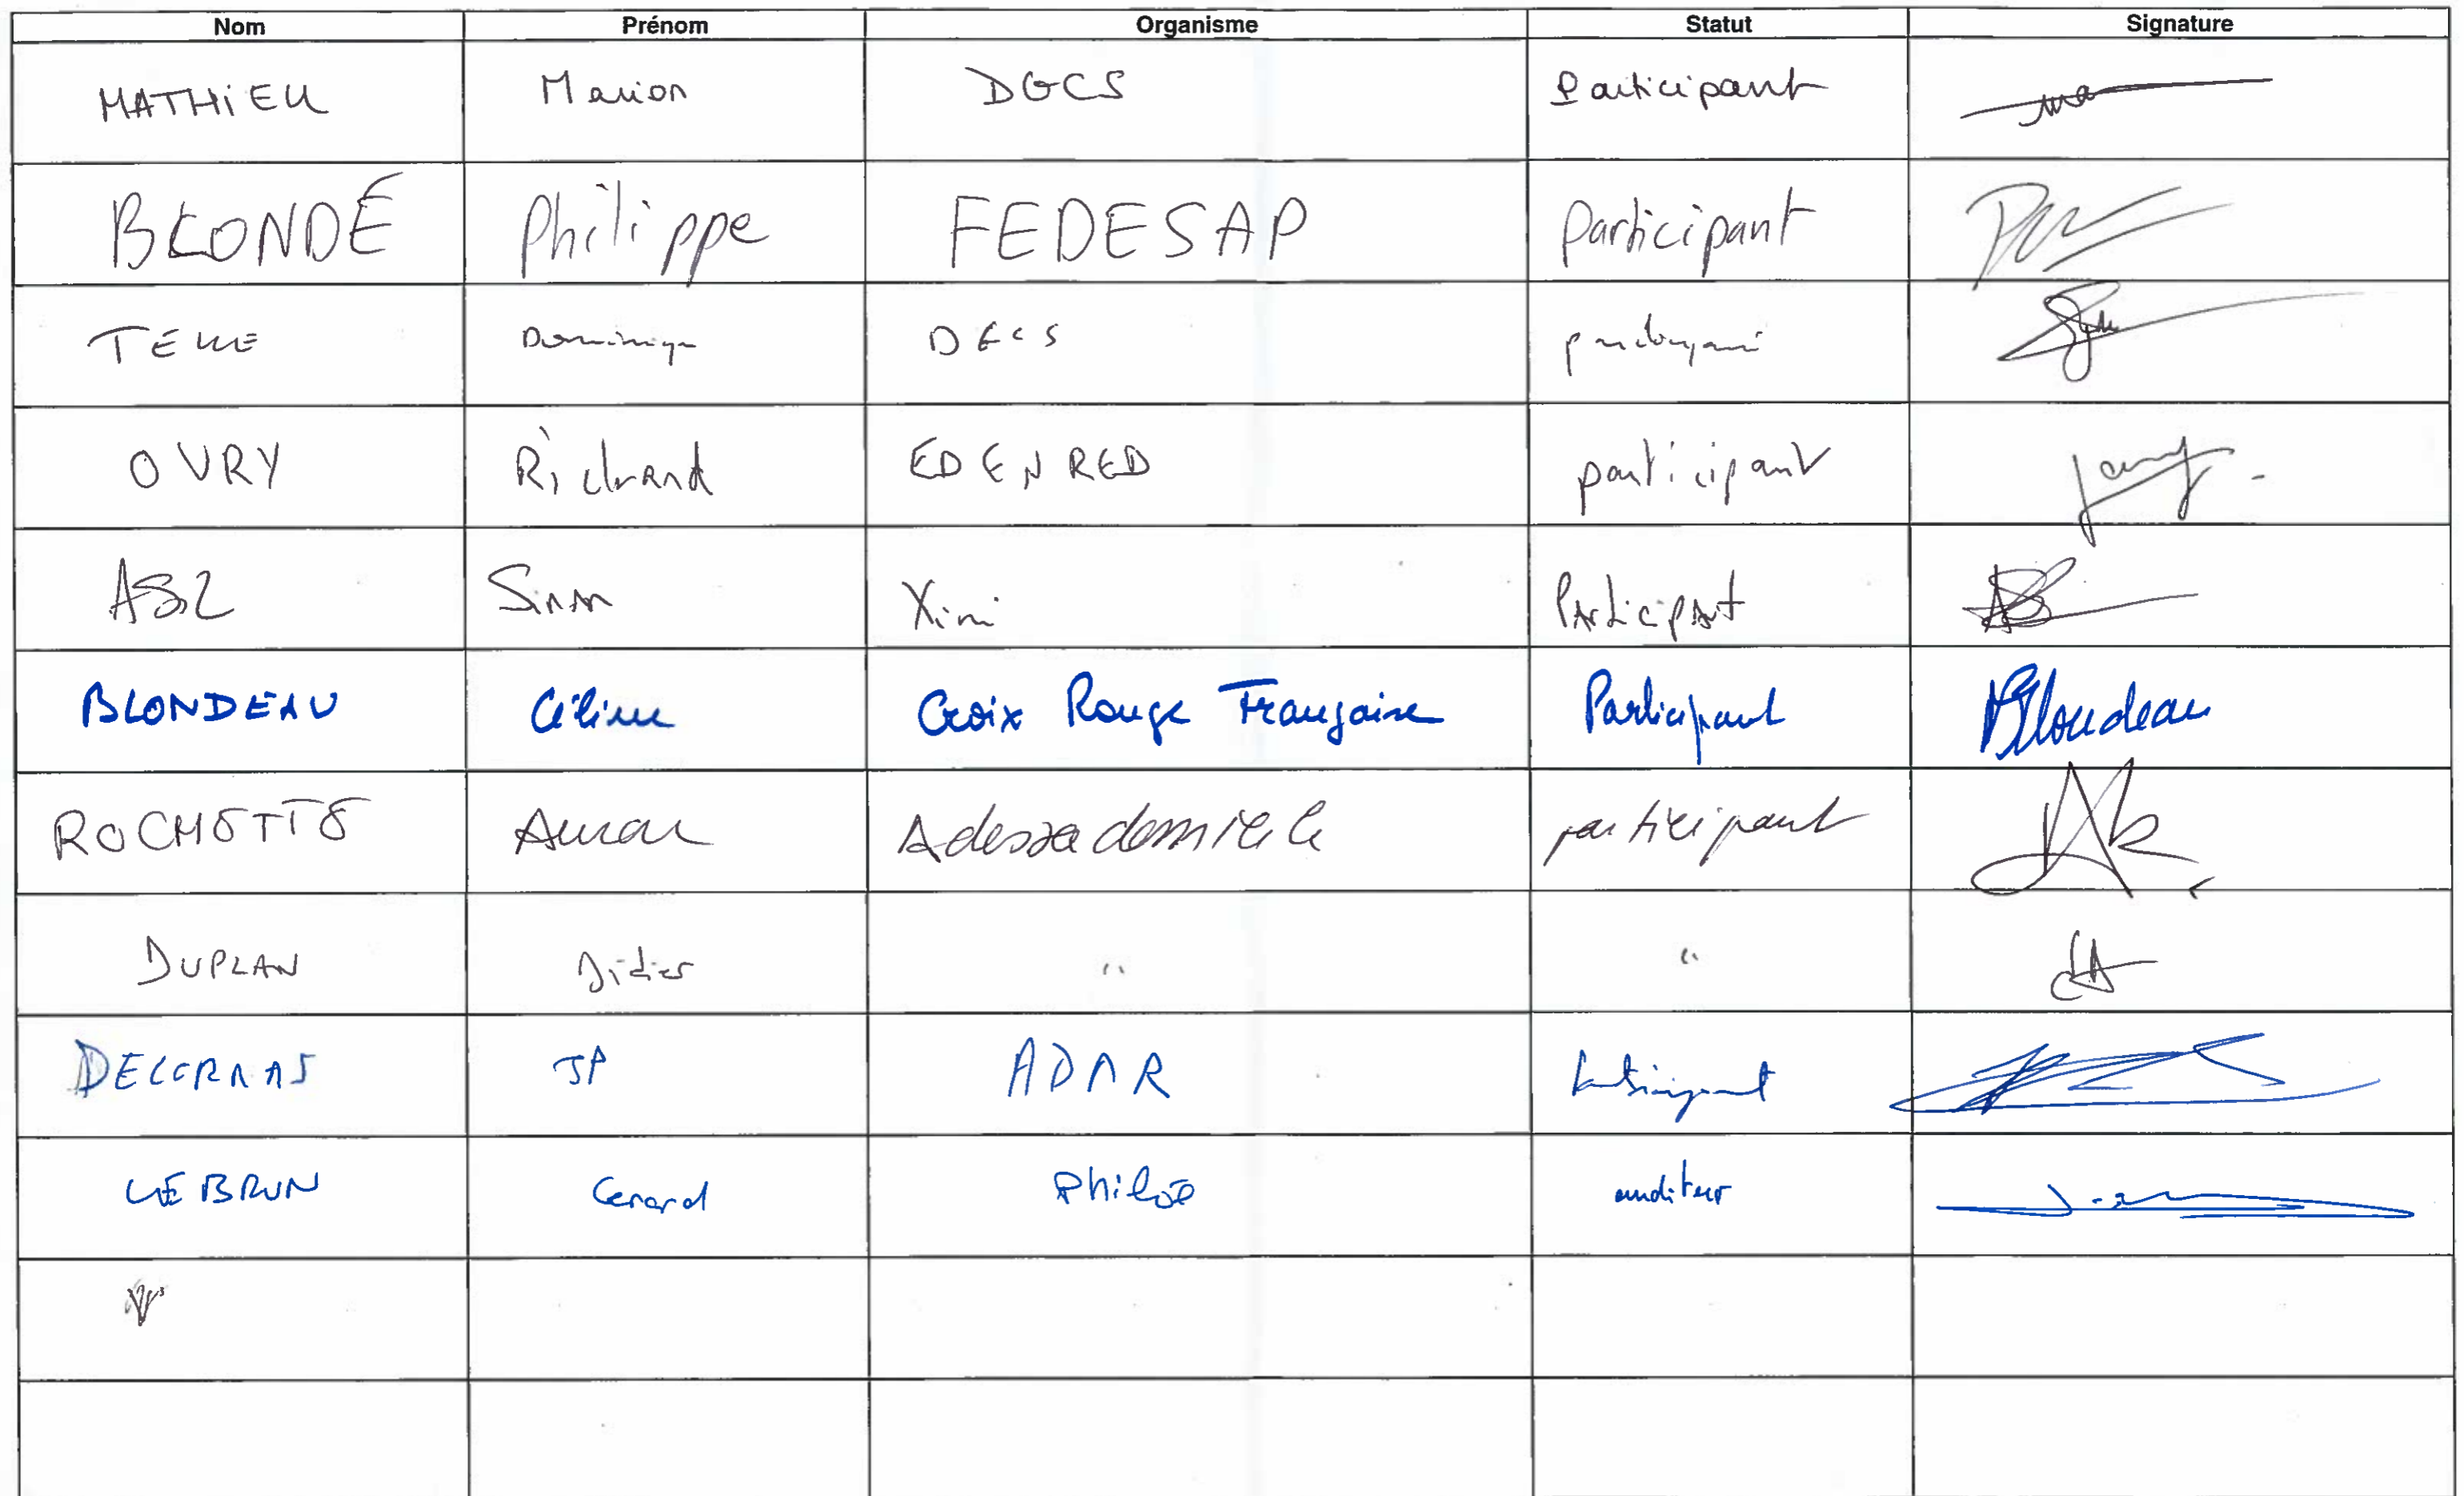 Nom Prénom Organisme Statut Signature
MATHIEU Marion DGCS Participant
BLONDÉ Philippe FEDESAP Participant
Dominique DGCS participant
OVRY Richard EDENRED participant
Sinan Ximi Participant
BLONDEAU Céline Croix Rouge Française Participant Blondeau
ROCHETTE Adessadomicile participant
DUPLAN Didier " "
JP ADAR Participant
LEBRUN Gerard Philoé auditeur